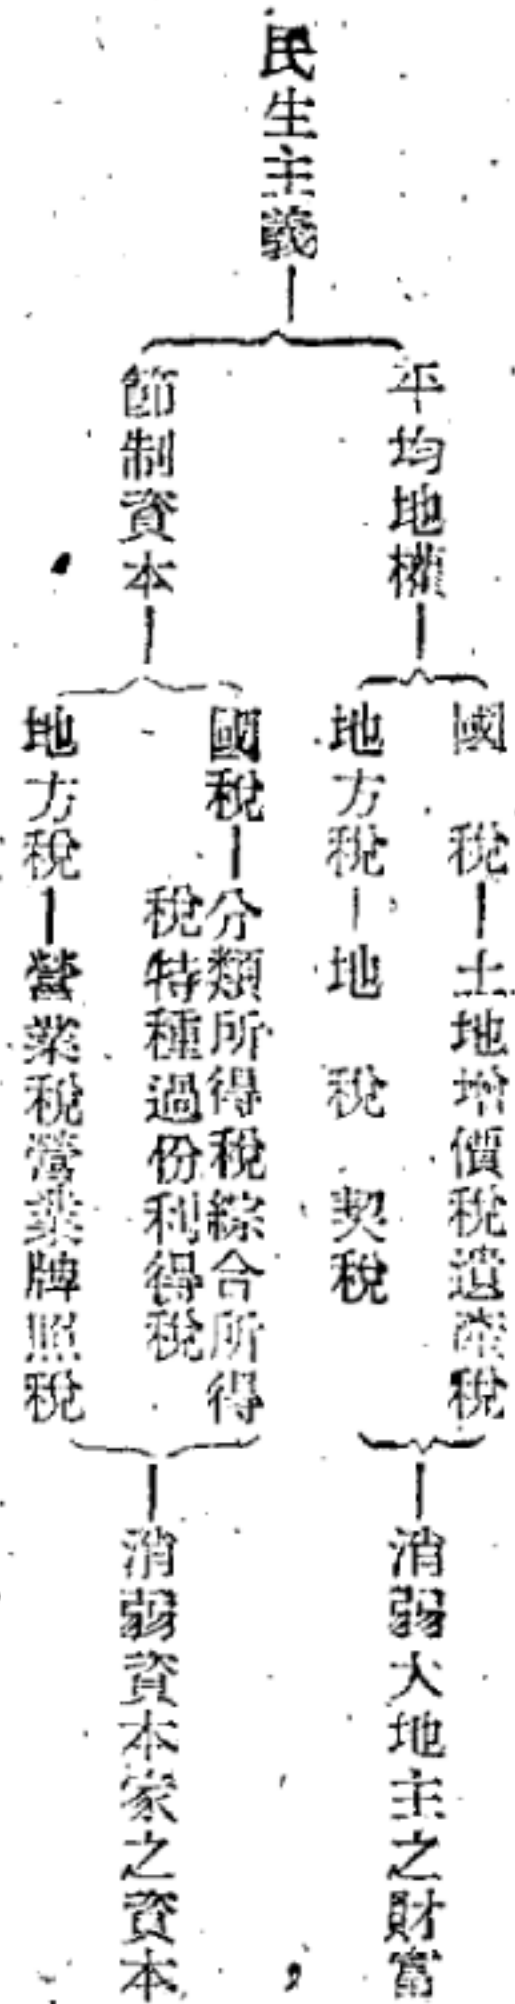 民生主義
平均地權
國稅
土地增價稅遺產稅
地方稅
地稅 契稅
消弱大地主之財富
節制資本
國稅
分類所得稅綜合所得
稅特種過份利得稅
地方稅
營業稅營業牌照稅
消弱資本家之資本